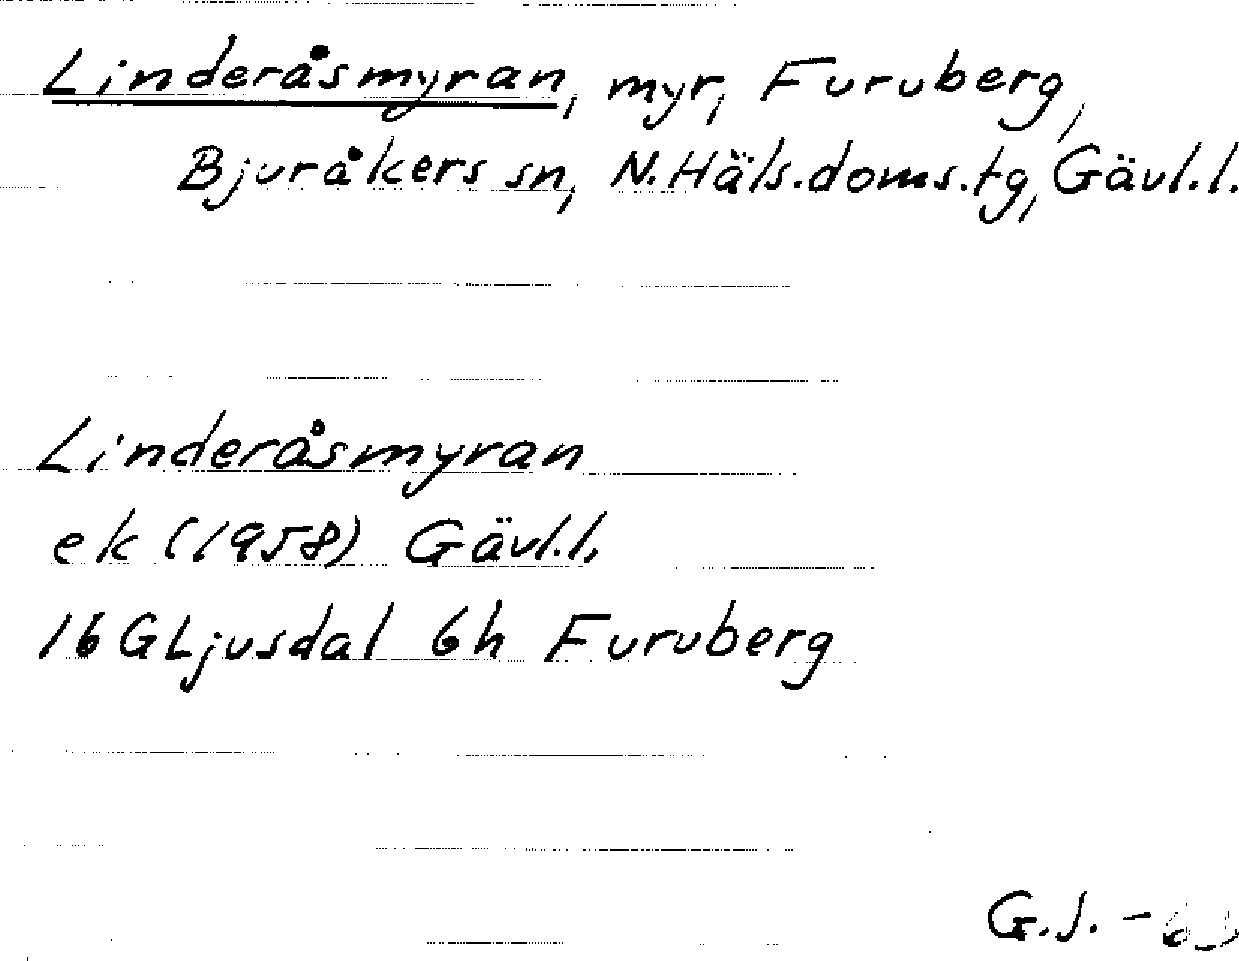 Linderåsmyran, myr, Furuberg,
Bjuråkers sn, N.Häls.doms.tg, Gävl.l.
Linderåsmyran
ek (1958) Gävl.l.
16 G Ljusdal 6h Furuberg
G.J.